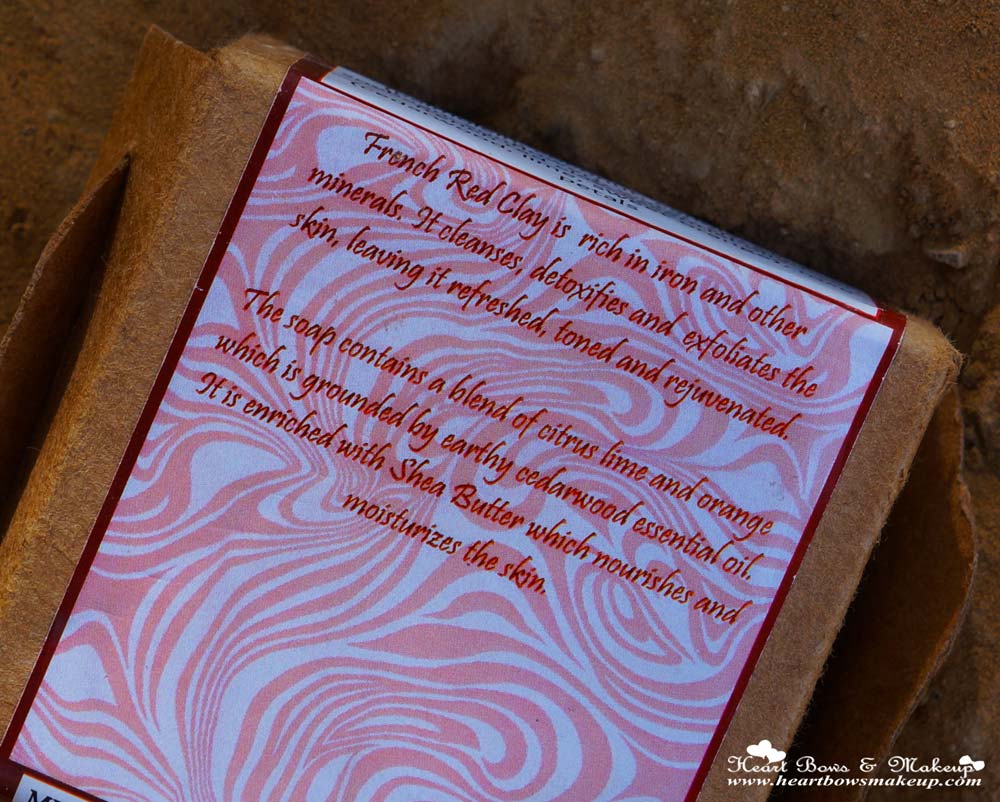 petals
French Red Clay is rich in iron and other
minerals. It cleanses, detoxifies and exfoliates the
skin, leaving it refreshed, toned and rejuvenated.
The soap contains a blend of citrus lime and orange
which is grounded by earthy cedarwood essential oil.
It is enriched with Shea Butter which nourishes and
moisturizes the skin.
Heart Bows & Makeup
www.heartbowsmakeup.com